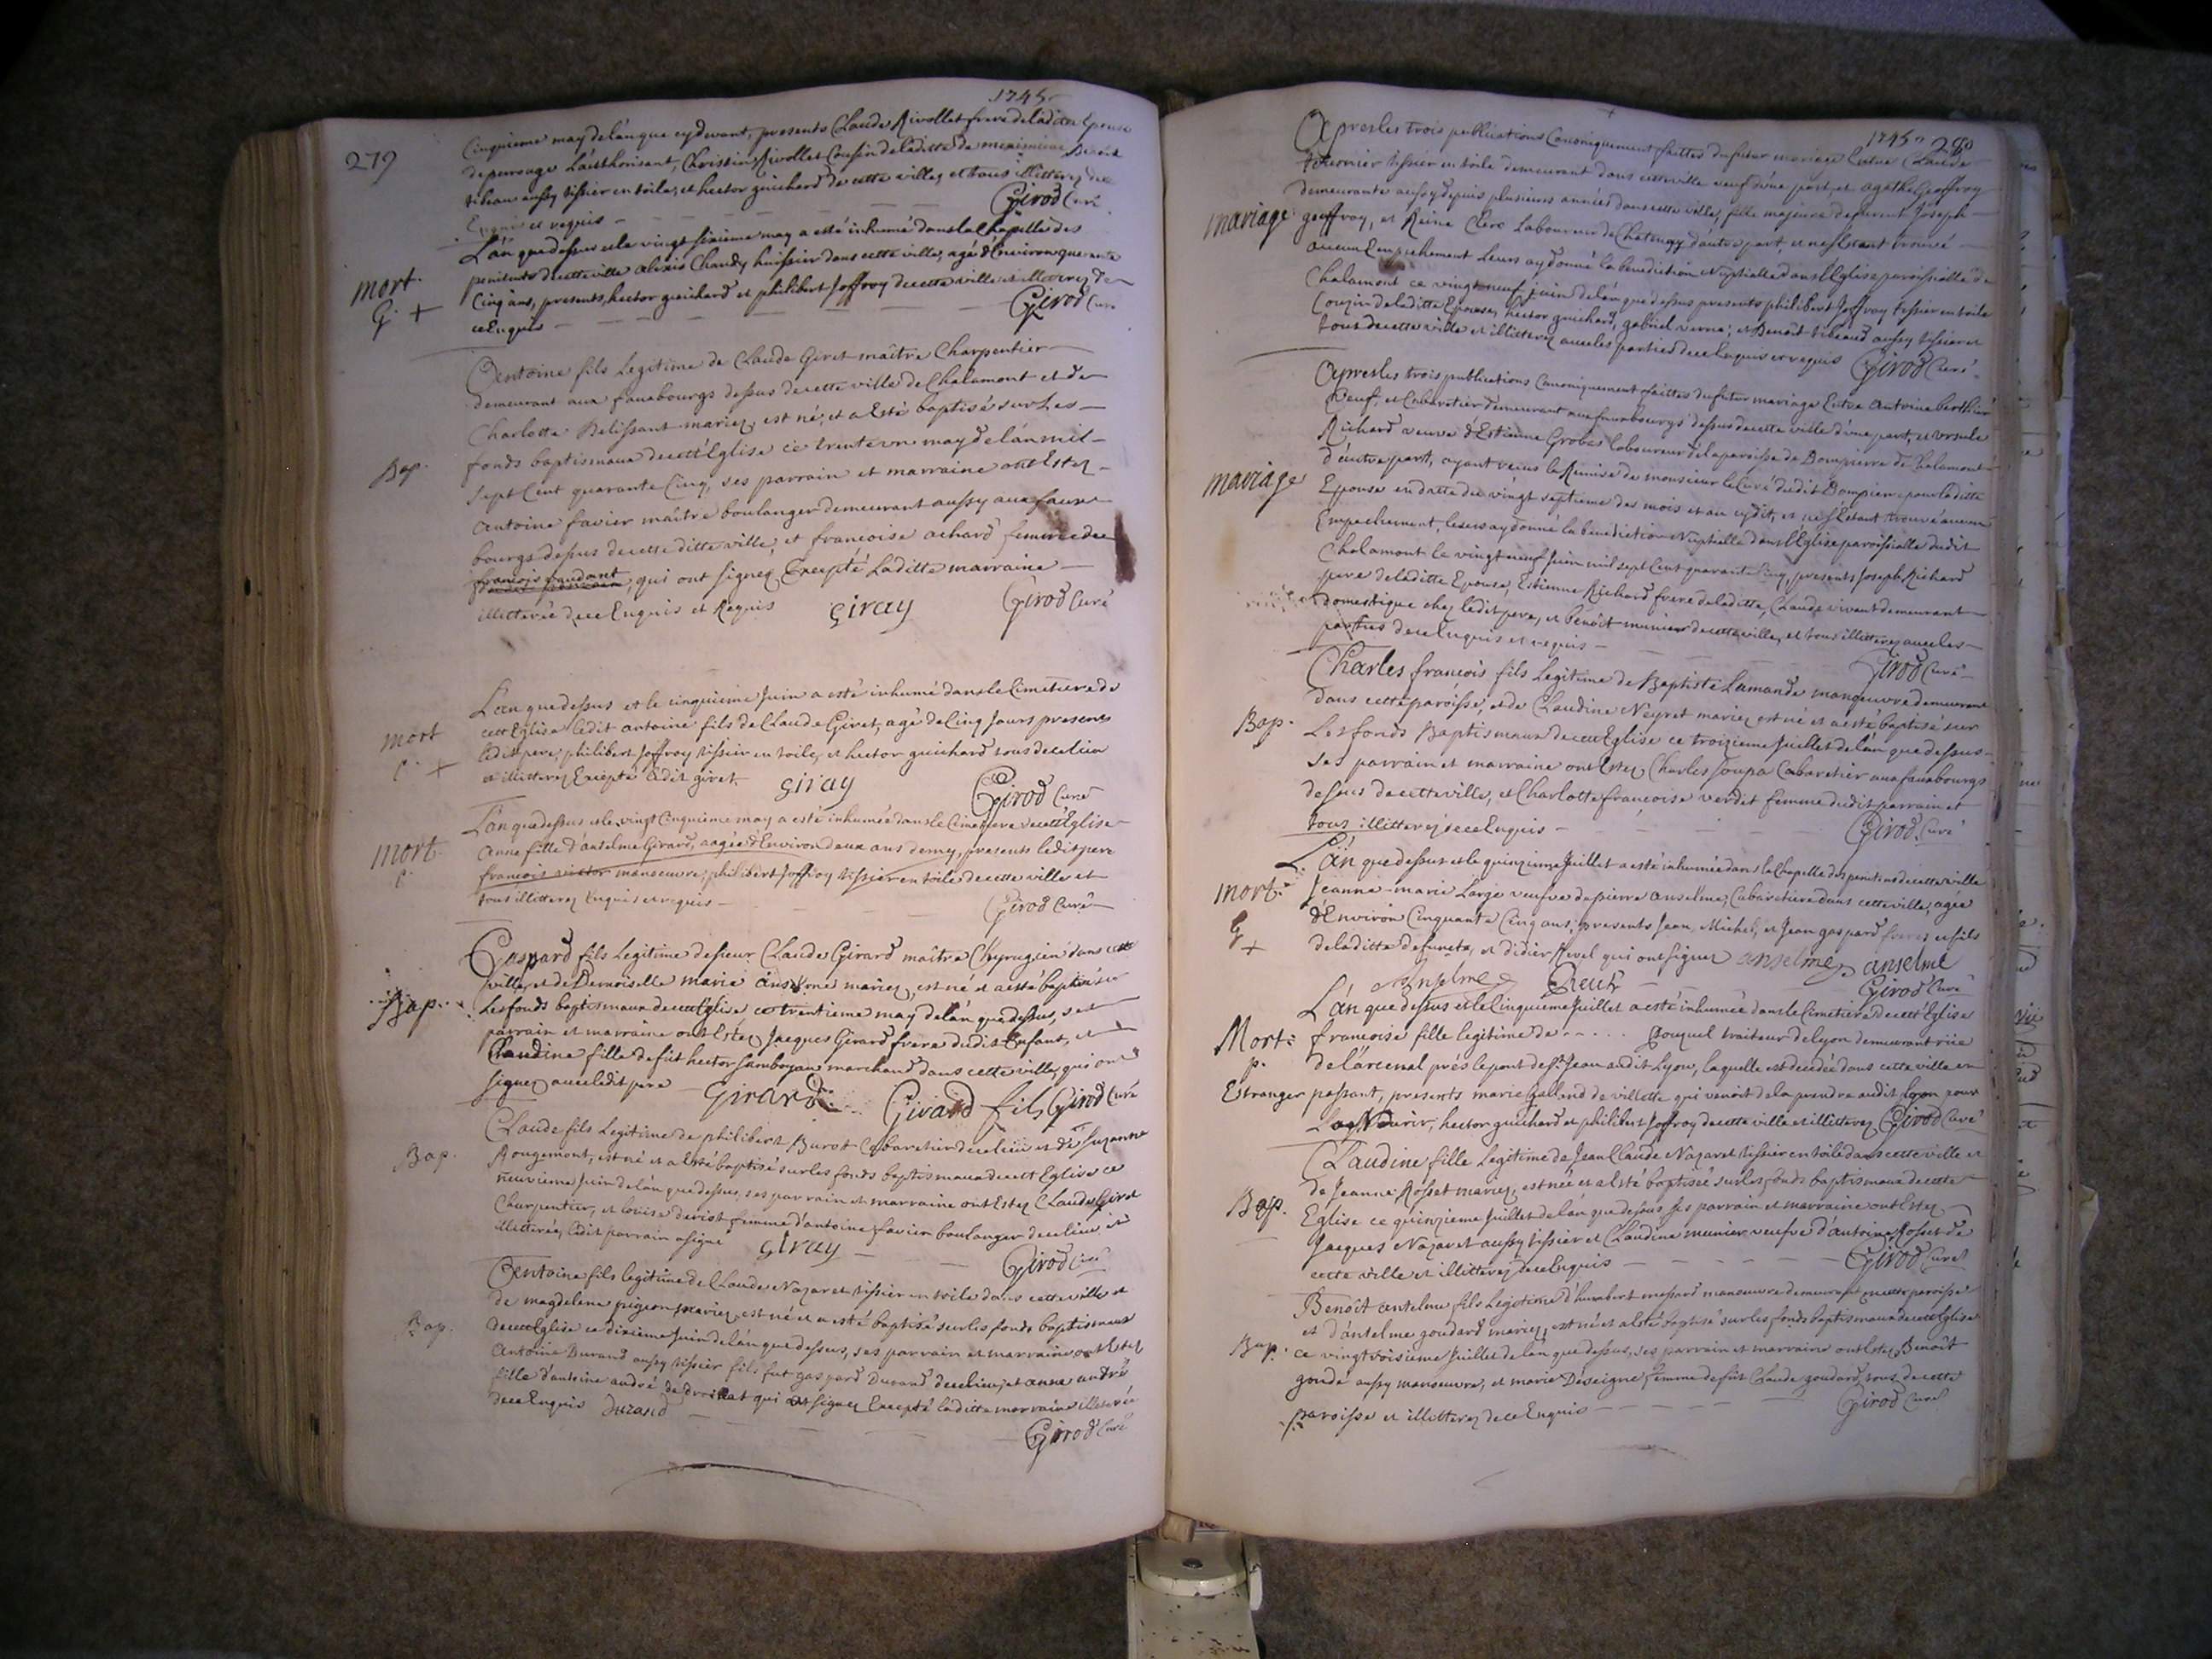 1745
279
Cinquieme may de l'an que cy devant, presents Claude Rivollet frere de laditte Epouse
de perouge L'authorisant, Christin Rivollet Cousin de laditte de meximieux Benoit
tibeau aussy tissier en toiles, et hector guichard de cette ville, et tous illitterez de ce
Enquis et requis - Girod Curé
L'an que dessus et le vingt sixieme may a esté inhumé dans la Chapelle des
mort. penitents de cette ville alexis Chandy huissier dans cette ville, agé d'Environ quarente
G. + Cinq ans, presents, hector guichard et philibert Joffroy de cette ville et illiterez de
ce Enquis - Girod Curé
Antoine fils Legitime de Claude Giret maître Charpentier
demeurant aux fauxbourgs dessus de cette ville de Chalamont et de
Charlotte Belissant mariez, est né, et a Esté baptisé sur Les
Bap. fonds baptismaux de cett Eglise ce trente un may de l'an mil
sept Cent quarante Cinq, ses parrain et marraine ont Estez
antoine favier maître boulanger demeurant aussy aux faux
bourgs dessus de cette ditte ville, et francoise achard femme de
françois gaudant, qui ont signez Excepté Laditte marraine
illitterée de ce Enquis et Requis giray Girod Curé
L'an que dessus et le cinquieme Juin a esté inhumé dans le Cimetiere de
mort cett Eglise ledit antoine fils de Claude Giret, agé de Cinq Jours presents
p. + ledit pere, philibert Joffroy tissier en toiles, et hector guichard tous de ce lieu
et illitterez Excepté ledit giret giray Girod Curé
L'an que dessus et le vingt Cinquieme may a esté inhumée dans le Cimetiere de cett Eglise
mort Anne fille d'anselme Girard, aagée d'Environ deux ans demy, presents ledit pere
p. françois victor manoeuvre, philibert Joffroy tissier en toile de cette ville et
tous illitterez Enquis et requis - Girod Curé
Gaspard fils Legitime de sieur Claude Girard maître Chyrugien dans cette
ville, et de Demoiselle marie anselme mariez, est né et a esté baptisé sur
Bap. Les fonds baptismaux de cett Eglise ce trentieme may de l'an que dessus, ses
parrain et marraine ont Estez Jacques Girard frere dudit Enfant, et
Claudine fille de fût hector Jamboyan marchand dans cette ville, qui ont
signez avec ledit pere Girard Girard fils Girod Curé
Claude fils Legitime de philibert Burot Cabaretier de ce lieu et de suzanne
Bap. Rougemont, est né et a Esté baptisé sur les fonds baptismaux de cett Eglise ce
neuvieme Juin de l'an que dessus, ses parrain et marraine ont Estez Claude Giret
Charpentier, et louise deriot femme d'antoine favier boulanger de ce lieu et
illitterée, ledit parrain a signé giray - Girod Curé
Antoine fils legitime de Claude Nazaret tissier en toile dans cette ville et
de magdelene pigeon mariez, est né et a esté baptisé sur les fonds baptismaux
Bap. de cett Eglise ce dixieme Juin de l'an que dessus, ses parrain et marraine ont Estez
Antoine Durand aussy tissier fils fut gaspard Durand de ce lieu, et anne andré
fille d'antoine andré de Druillat qui ont signez Excepté laditte marraine illiterée
de ce Enquis Durand - Girod Curé
1745 280
Apres les trois publications Canoniquement faittes du futur mariage Entre Claude
tissier en toile demeurant dans cette ville veuf d'une part, et agathe Geoffroy
demeurante aussy depuis plusieurs années dans cette ville, fille majeure de furent Joseph
mariage geoffroy, et Reine Clerc Laboureur de Chatenay d'autre part et ne s'Etant trouvé
aucun Empechement Leurs ay donné la benediction Nuptialle dans l'Eglise paroissialle de
Chalamont ce vingt neuf juin de l'an que dessus presents philibert Joffroy tissier en toile
Couzin de laditte Epouse, hector guichard, gabriel verne, et Benoit tibeaud aussy tissier et
tous de cette ville et illitterez avec les parties de ce Enquis et requis Girod Curé
Apres les trois publications Canoniquement faittes du futur mariage Entre antoine berthier
veuf, et Cabaretier demeurant aux fauxbourgs dessus de cette ville d'une part, et ursule
Richard veuve d'Estienne Grobas laboureur de la paroisse de Dompierre de Chalamont
d'autre part, ayant vû la Remise de monsieur le Curé dudit Dompierre pour laditte
mariage Epouse en datte du vingt septieme des mois et an cydit, et ne s'Etant trouvé aucun
Empechement, leurs ay donné la benediction Nuptialle dans l'Eglise paroissialle dudit
Chalamont le vingt neuf Juin mil sept Cent quarante Cinq, presents Joseph Richard
pere de laditte Epouse, Estienne Richard frere de laditte, Claude vivant demeurant
domestique chez ledit pere, et benoit munier de cette ville, et tous illitterez avec les
parties de ce Enquis et requis - Girod Curé
Charles francois fils Legitime de Baptiste Lamande manoeuvre demeurant
dans cette paroisse, et de Claudine Neyret mariez est né et a esté baptisé sur
Bap. Les fonds Baptismaux de cett Eglise ce troizieme Juillet de l'an que dessus
ses parrain et marraine ont Estez Charles Soupa Cabaretier aux fauxbourgs
dessus de cette ville, et Charlotte françoise verdet femme dudit parrain et
tous illitterez de ce Enquis - Girod Curé
L'an que dessus et le quinzieme Juillet a esté inhumée dans la Chapelle des penitens de cette ville
mort. Jeanne-marie Large veufve de pierre anselme, Cabaretiere dans cette ville, agée
G + d'Environ Cinquante Cinq ans, presents Jean, Michel, et Jean gaspard freres et fils
de laditte defuncte, et didier Revel qui ont signez anselme, anselme
Anselme Revel Girod Curé
L'an que dessus et le Cinquieme Juillet a esté inhumée dans le Cimetiere de cett Eglise
Mort. francoise fille legitime de . . . . . . pouquel traiteur de lyon demeurant rüe
p. de l'arcenal prés le pont de St. Jean audit Lyon, laquelle est decedée dans cette ville en
Estranger passant, presents marie galland de villette qui venoit de la prendre audit lyon pour
La Nourir, hector guichard et philibert Joffroy de cette ville et illitterez Girod Curé
Claudine fille Legitime de Jean Claude Nazaret tissier en toile dans cette ville et
de Jeanne Rosset mariez, est née et a Esté baptisée sur les fonds baptismaux de cette
Bap. Eglise ce quinzieme Juillet de l'an que dessus ses parrain et marraine ont Estez
Jacques Nazaret aussy tissier et Claudine munier veufve d'antoine Rosset de
cette ville et illitterez de ce Enquis - Girod Curé
Benoît antelme fils Legitime d'humbert messard manoeuvre demeurant en cette paroisse
et d'antelme goudard mariez, est né et a esté baptisé sur les fonds baptismaux de cett Eglise
Bap. ce vingt troisieme Juillet de l'an que dessus, ses parrain et marraine ont Estez Benoît
gonde aussy manoeuvre, et marie Deseigne femme de fût Claude goudard, tous de cette
paroisse et illitterez de ce Enquis - Girod Curé